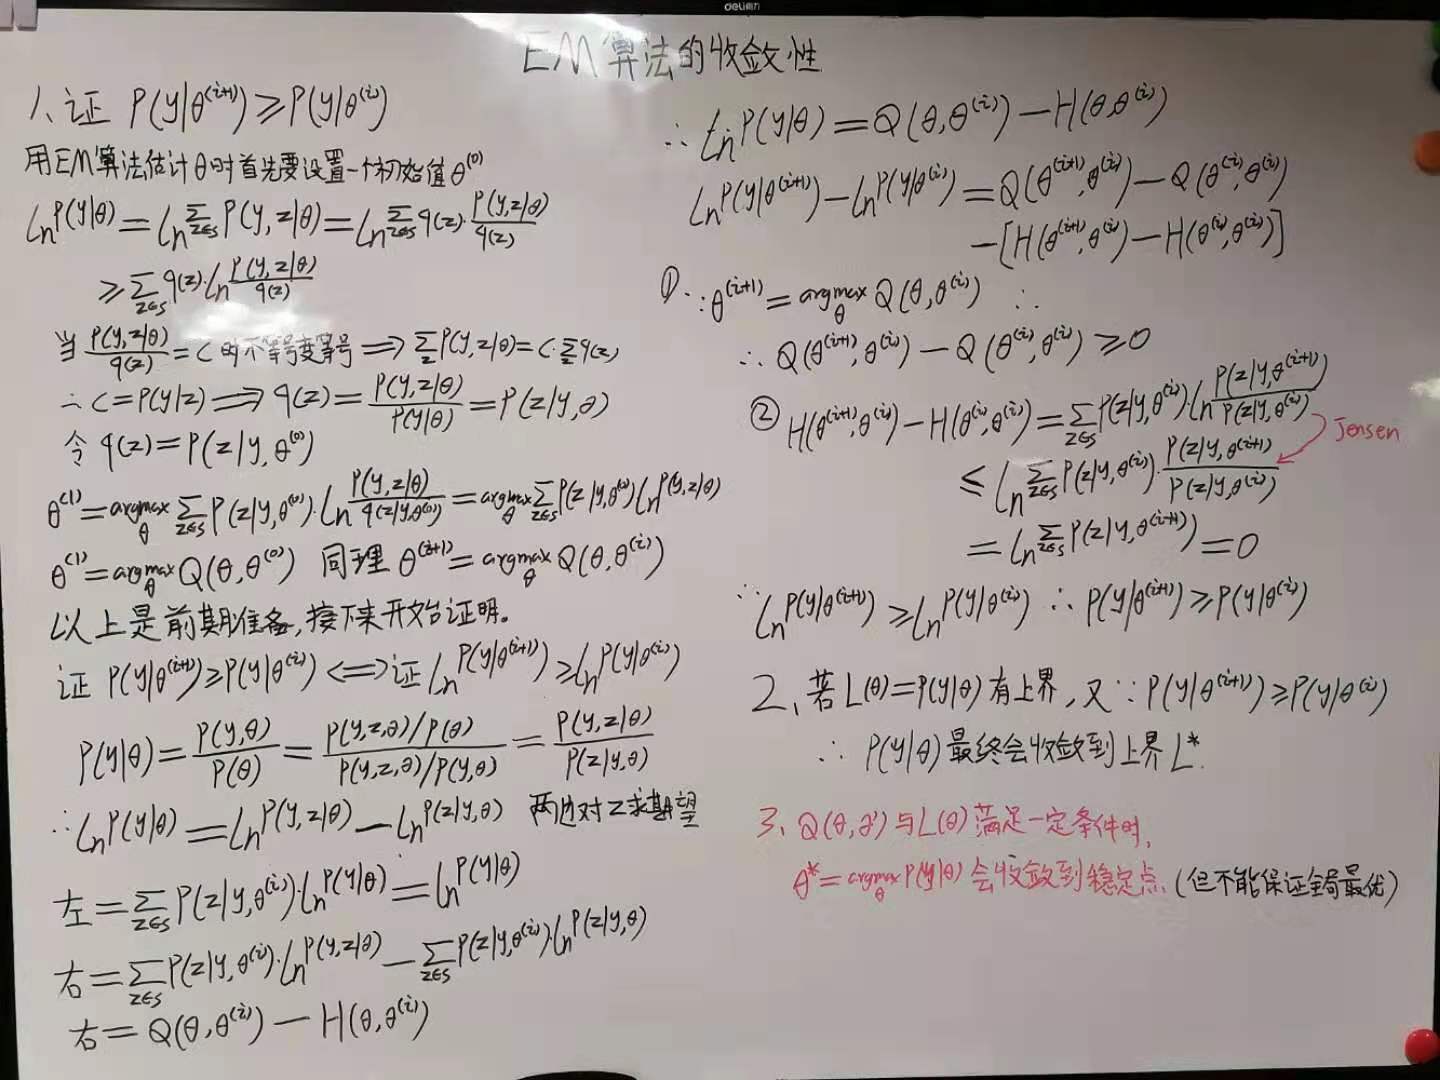 deli得力
EM算法的收敛性
1、证 P(y|θ^(i+1)) ≥ P(y|θ^(i))
用EM算法估计θ时首先要设置一个初始值θ^(0)
Ln P(y|θ) = Ln Σ_{z∈S} P(y,z|θ) = Ln Σ_{z∈S} q(z)· P(y,z|θ)/q(z)
≥ Σ_{z∈S} q(z)·Ln P(y,z|θ)/q(z)
当 P(y,z|θ)/q(z) = C 时不等号变等号 ⟹ Σ_z P(y,z|θ) = C·Σ_z q(z)
∴ C = P(y|z) ⟹ q(z) = P(y,z|θ)/P(y|θ) = P(z|y,θ)
令 q(z) = P(z|y,θ^(0))
θ^(1) = argmax_θ Σ_{z∈S} P(z|y,θ^(0))·Ln P(y,z|θ)/q(z|y,θ^(0)) = argmax_θ Σ_{z∈S} P(z|y,θ^(0)) Ln P(y,z|θ)
θ^(1) = argmax_θ Q(θ,θ^(0)) 同理 θ^(i+1) = argmax_θ Q(θ,θ^(i))
以上是前期准备,接下来开始证明。
证 P(y|θ^(i+1)) ≥ P(y|θ^(i)) ⟺ 证 Ln P(y|θ^(i+1)) ≥ Ln P(y|θ^(i))
P(y|θ) = P(y,θ)/P(θ) = (P(y,z,θ)/P(θ))/(P(y,z,θ)/P(y,θ)) = P(y,z|θ)/P(z|y,θ)
∴ Ln P(y|θ) = Ln P(y,z|θ) − Ln P(z|y,θ) 两边对Z求期望
左 = Σ_{z∈S} P(z|y,θ^(i))·Ln P(y|θ) = Ln P(y|θ)
右 = Σ_{z∈S} P(z|y,θ^(i))·Ln P(y,z|θ) − Σ_{z∈S} P(z|y,θ^(i))·Ln P(z|y,θ)
右 = Q(θ,θ^(i)) − H(θ,θ^(i))
∴ Ln P(y|θ) = Q(θ,θ^(i)) − H(θ,θ^(i))
Ln P(y|θ^(i+1)) − Ln P(y|θ^(i)) = Q(θ^(i+1),θ^(i)) − Q(θ^(i),θ^(i))
− [H(θ^(i+1),θ^(i)) − H(θ^(i),θ^(i))]
① ∵ θ^(i+1) = argmax_θ Q(θ,θ^(i)) ∴
∴ Q(θ^(i+1),θ^(i)) − Q(θ^(i),θ^(i)) ≥ 0
② H(θ^(i+1),θ^(i)) − H(θ^(i),θ^(i)) = Σ_{z∈S} P(z|y,θ^(i))·Ln P(z|y,θ^(i+1))/P(z|y,θ^(i))
Jensen
≤ Ln Σ_{z∈S} P(z|y,θ^(i))· P(z|y,θ^(i+1))/P(z|y,θ^(i))
= Ln Σ_{z∈S} P(z|y,θ^(i+1)) = 0
∵ Ln P(y|θ^(i+1)) ≥ Ln P(y|θ^(i)) ∴ P(y|θ^(i+1)) ≥ P(y|θ^(i))
2、若L(θ) = P(y|θ) 有上界, 又∵ P(y|θ^(i+1)) ≥ P(y|θ^(i))
∴ P(y|θ) 最终会收敛到上界L*.
3、Q(θ,θ') 与 L(θ) 满足一定条件时,
θ* = argmax_θ P(y|θ) 会收敛到稳定点.(但不能保证全局最优)